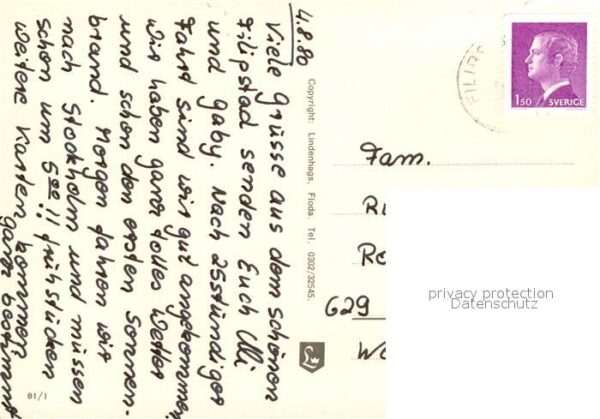 4.8.80
Viele Grüsse aus dem schönen
Filipstad senden Euch Uli
und Gaby. Nach 25stündiger
Fahrt sind wir gut angekommen.
Wir haben ganz tolles Wetter
und schon den ersten Sonnen-
brand. Morgen fahren wir
nach Stockholm und müssen
schon um 5°° !! frühstücken
weitere Karten kommen
ganz bestimmt
Copyright: Lindenhags, Floda. Tel. 0302/32545.
81/1
FILIPS
1.50 SVERIGE
Fam.
629
privacy protection
Datenschutz